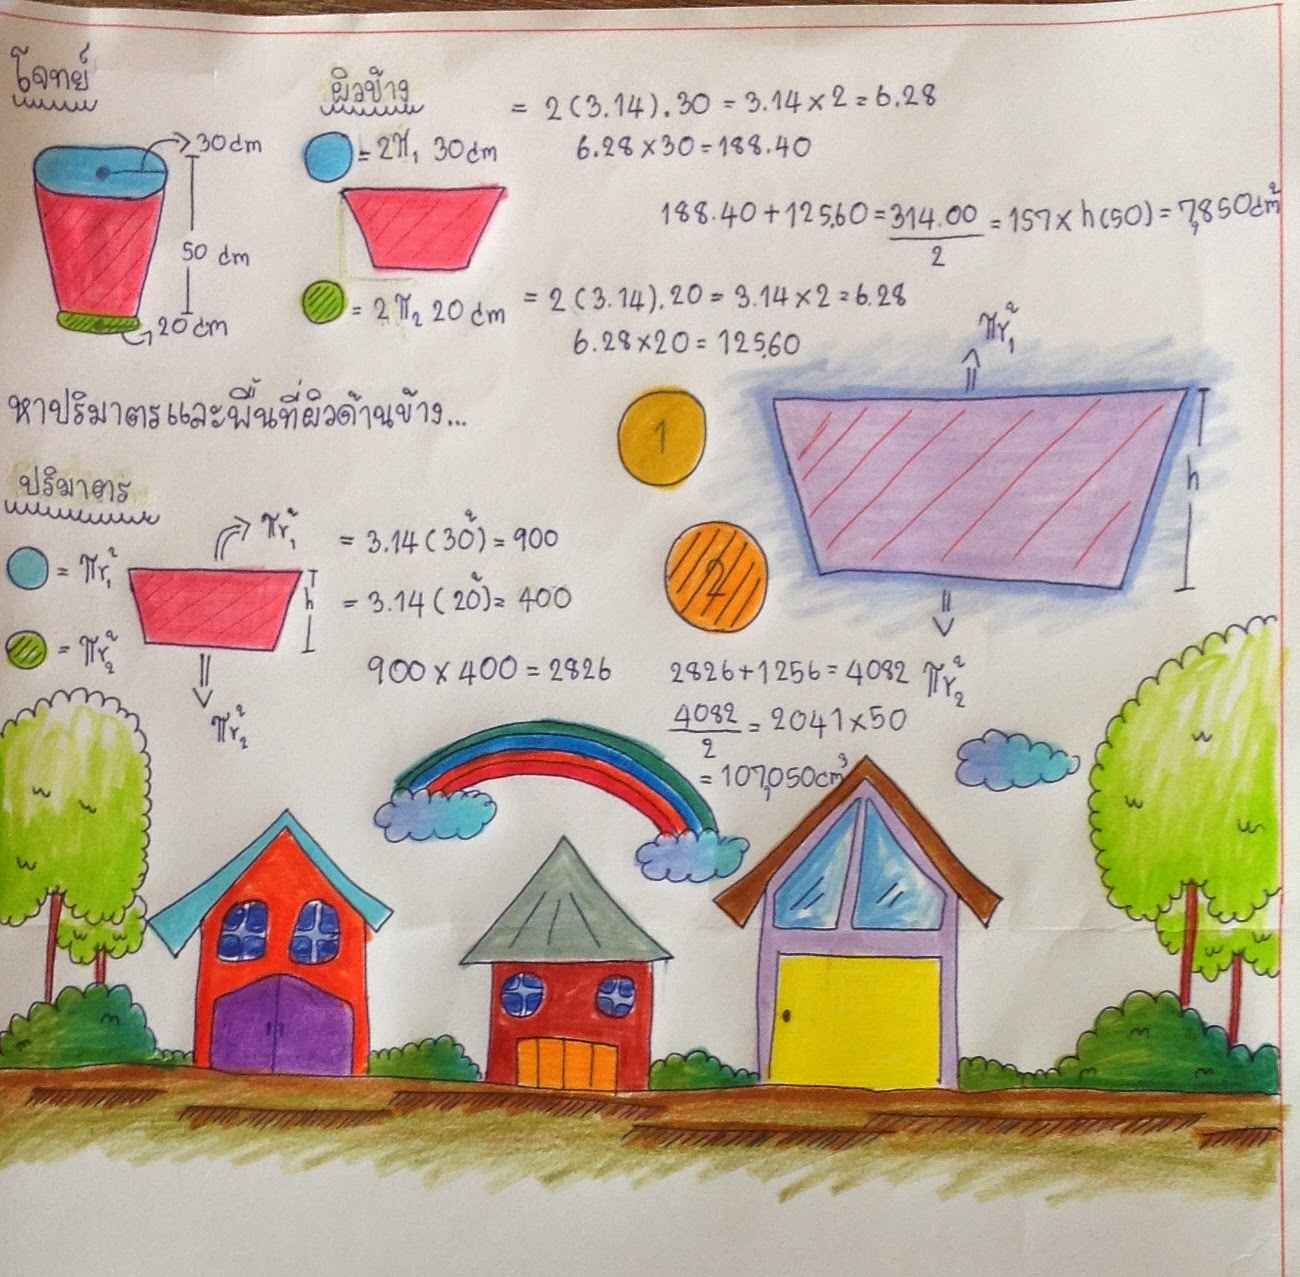 โจทย์
30cm
50 cm
20cm
ผิวข้าง
= 2π1 30cm
= 2(3.14).30 = 3.14×2 = 6.28
6.28×30=188.40
188.40+125.60=314.00/2 = 157× h(50) = 7,850cm²
= 2π2 20 cm
= 2(3.14).20 = 3.14×2 = 6.28
6.28×20 = 125.60
หาปริมาตรและพื้นที่ผิวด้านข้าง...
1
2
πr₁²
h
πr₂²
ปริมาตร
= πr₁²
= πr₂²
πr₁²
h
πr₂²
= 3.14(30²) = 900
= 3.14(20²) = 400
900×400 = 2826
2826+1256 = 4082
4082/2 = 2041×50
= 107,050cm³